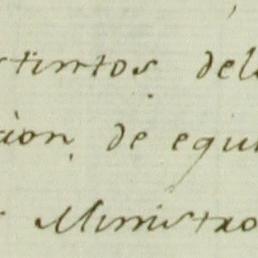 stintos del
cion de equi
Ministro